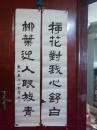 梅花對我心舒白
柳葉迎人眼放青